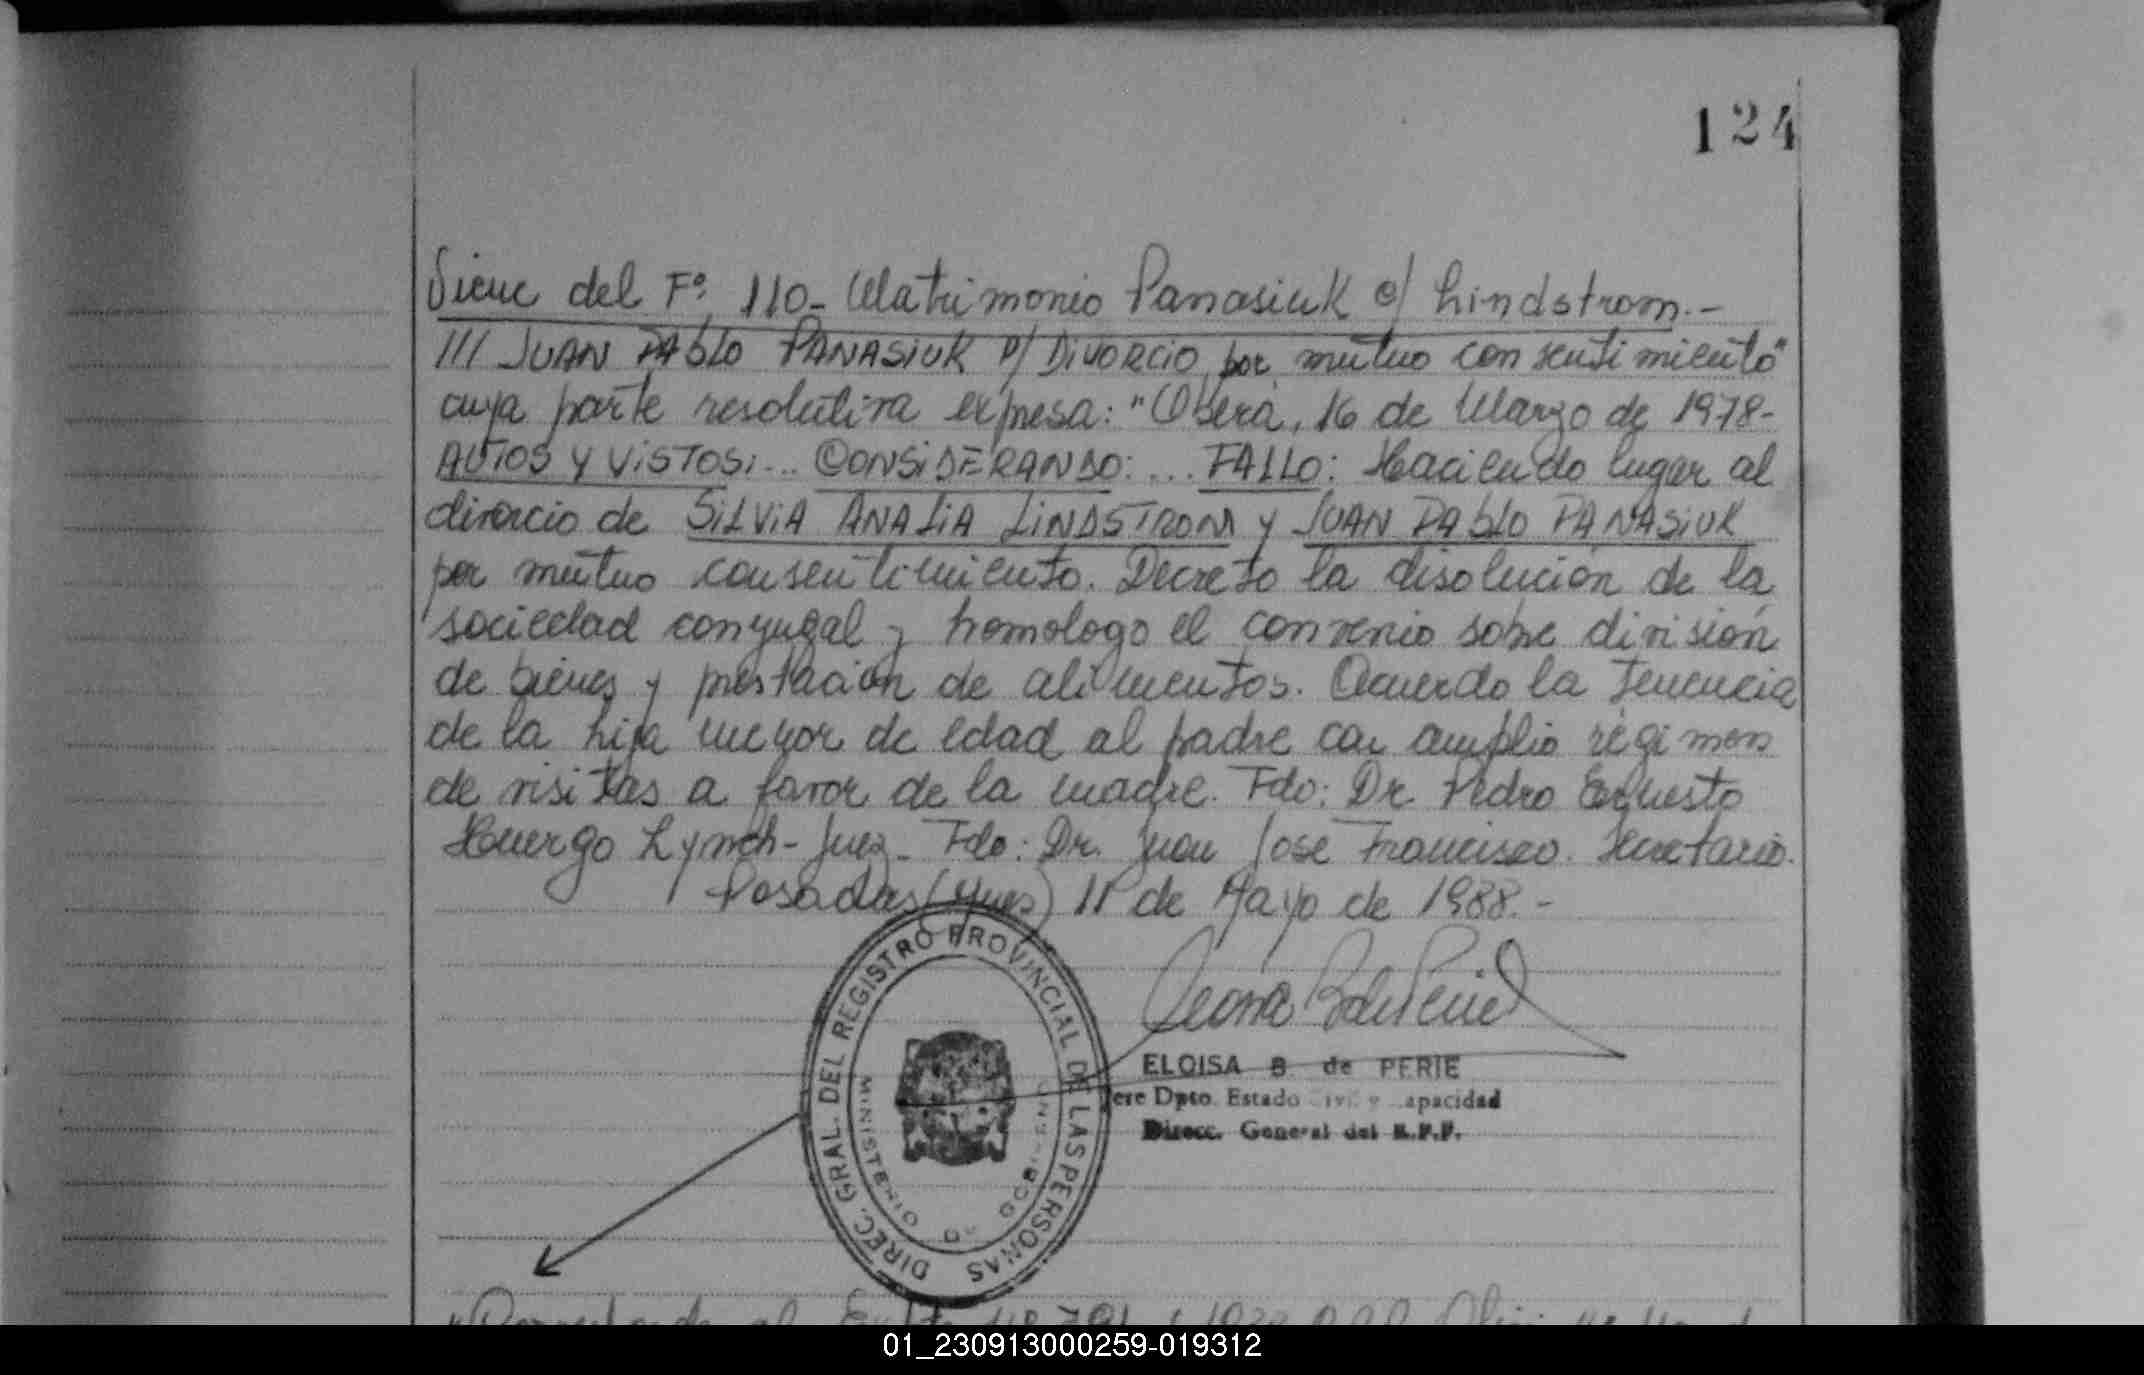 124
Viene del Fº 110- Matrimonio Panasiuk c/ Lindstrom.-
/// JUAN PABLO PANASIUK p/ Divorcio por mutuo consentimiento"
cuya parte resolutiva expresa: "Oberá, 16 de Marzo de 1978-
AUTOS Y VISTOS:... CONSIDERANDO:... FALLO: Haciendo lugar al
divorcio de SILVIA ANALIA LINDSTROM y JUAN PABLO PANASIUK
por mutuo consentimiento. Decreto la disolución de la
sociedad conyugal y homologo el convenio sobre división
de bienes y prestación de alimentos. Acuerdo la tenencia
de la hija menor de edad al padre con amplio régimen
de visitas a favor de la madre. Fdo: Dr. Pedro Ernesto
Huergo Lynch- Juez- Fdo: Dr. Juan José Francisco. Secretario.
Posadas (Mnes) 11 de Mayo de 1988.-
DIREC. GRAL. DEL REGISTRO PROVINCIAL DE LAS PERSONAS
MINISTERIO DE GOBIERNO
ELOISA B. de PERIE
Dpto. Estado Civil y Capacidad
Direcc. General del R.P.P.
01_230913000259-019312